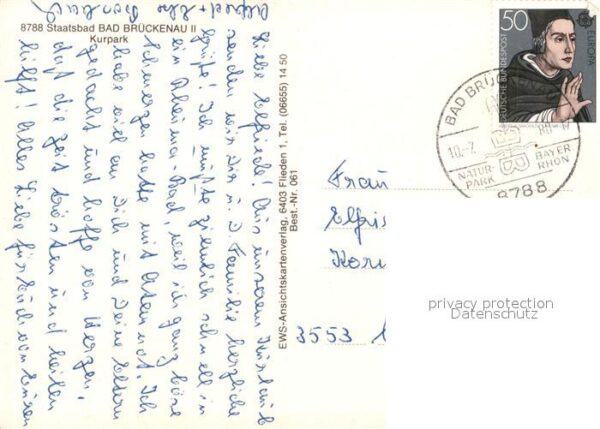 8788 Staatsbad BAD BRÜCKENAU II
Kurpark
Liebe Elfriede! Aus unserem Kururlaub
senden wir Dir u. D. Familie herzliche
Grüße! Ich mußte ziemlich schnell in
ein Rheuma-Bad, weil ich ganz böse
Schmerzen hatte mit Atemnot. Ich
habe viel an Dich und Deine Eltern
gedacht und hoffe von Herzen,
daß die Zeit trösten und heilen
hilft! Alles Liebe für Euch von Euren
EWS-Ansichtskartenverlag, 6403 Flieden 1, Tel. (06655) 14 50
Best.-Nr. 061
50
DEUTSCHE BUNDESPOST
EUROPA
BAD BRÜ
10.-7.
NATUR-
PARK
BAYER
RHÖN
8788
Frau
3553
privacy protection
Datenschutz